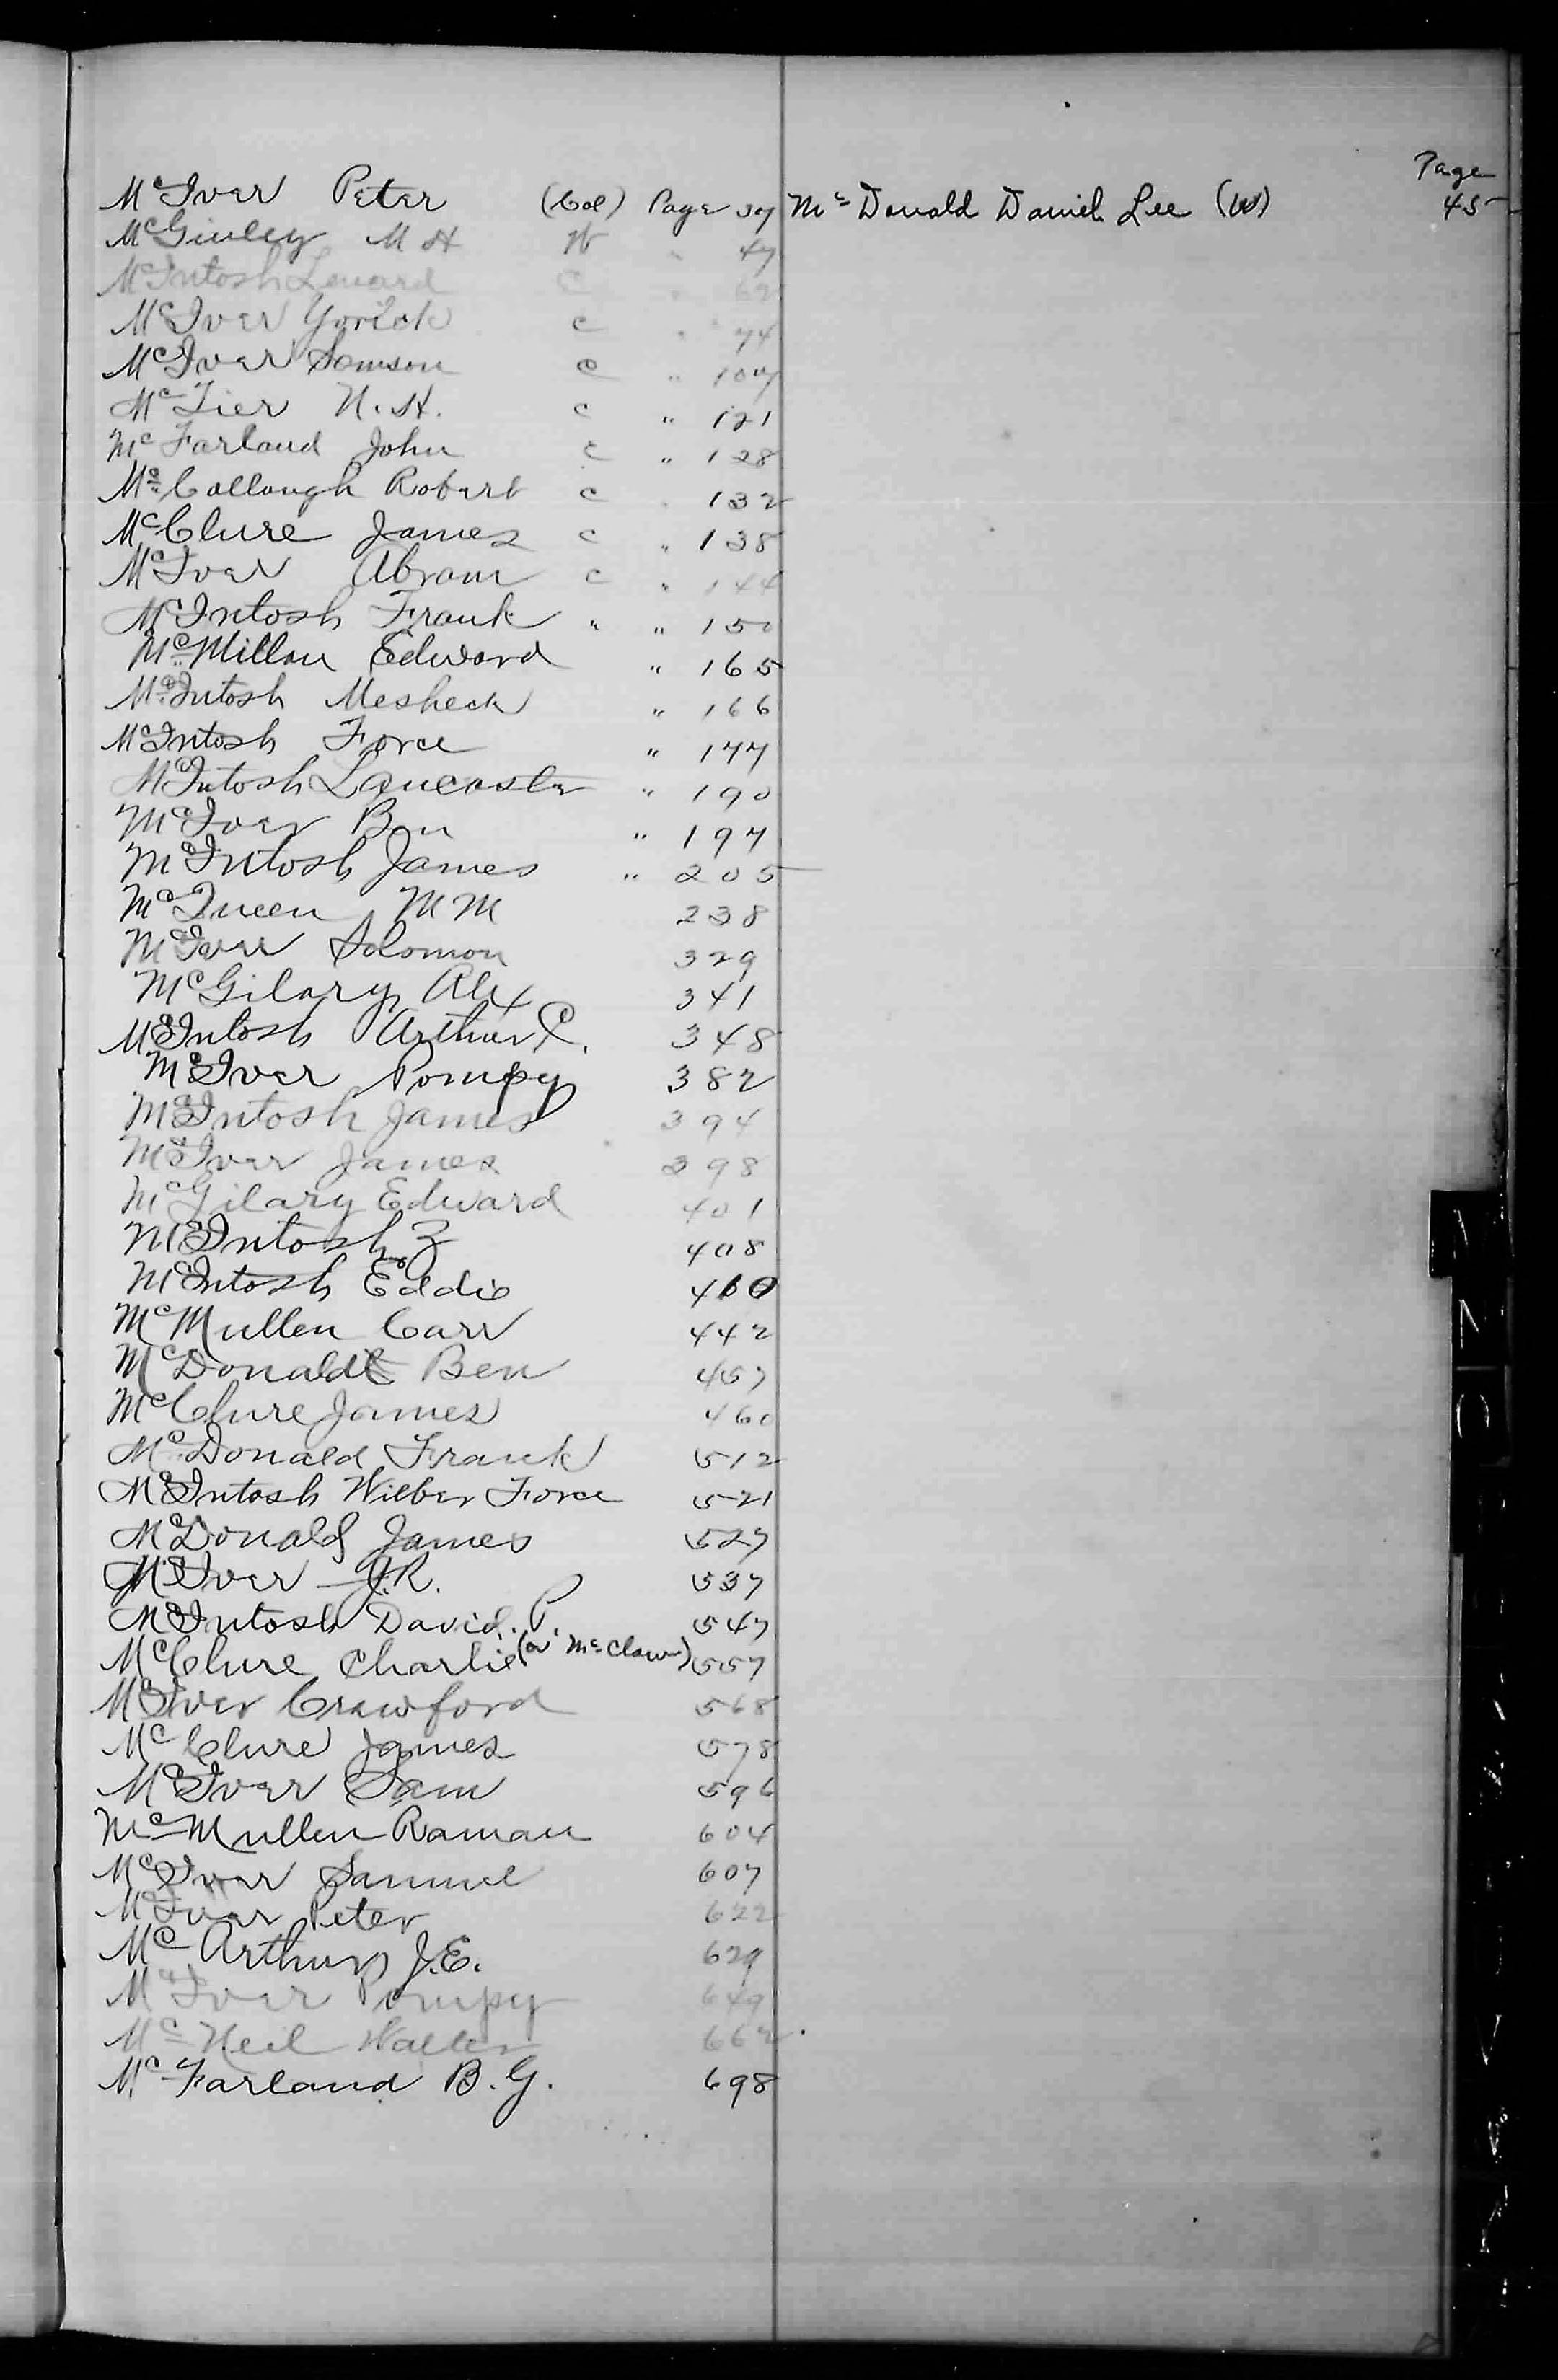 McIver Peter (Col) Page 37
McGinley M H W " 47
McIntosh Lenard C " 62
McIver Yorick c " 74
McIver Samson c " 107
McTier N. H. c " 121
McFarland John c " 128
McCollough Robert c " 132
McClure James c " 138
McIver Abram c " 144
McIntosh Frank " " 150
McMillan Edward " 165
McIntosh Mesheck " 166
McIntosh Force " 177
McIntosh Lancaster " 190
McIver Ben " 197
McIntosh James " 205
McQueen M M 238
McIver Solomon 329
McGilary Alex 341
McIntosh Arthur C. 348
McIver Pompy 382
McIntosh James 394
McIver James 398
McGilary Edward 401
McIntosh Z 408
McIntosh Eddie 410
McMullen Carr 442
McDonald Ben 457
McClure James 460
McDonald Frank 512
McIntosh Wilber Force 521
McDonald James 527
McIver J.R. 537
McIntosh David. P. 547
McClure Charlie (or McClaw) 557
McIver Crawford 568
McClure James 578
McIver Sam 596
McMullen Raman 604
McIver Samuel 607
McIver Peter 622
McArthur J.E. 629
McIver Pompy 649
McNeil Walter 662
McFarland B. G. 698
Page
McDonald Daniel Lee (W) 45